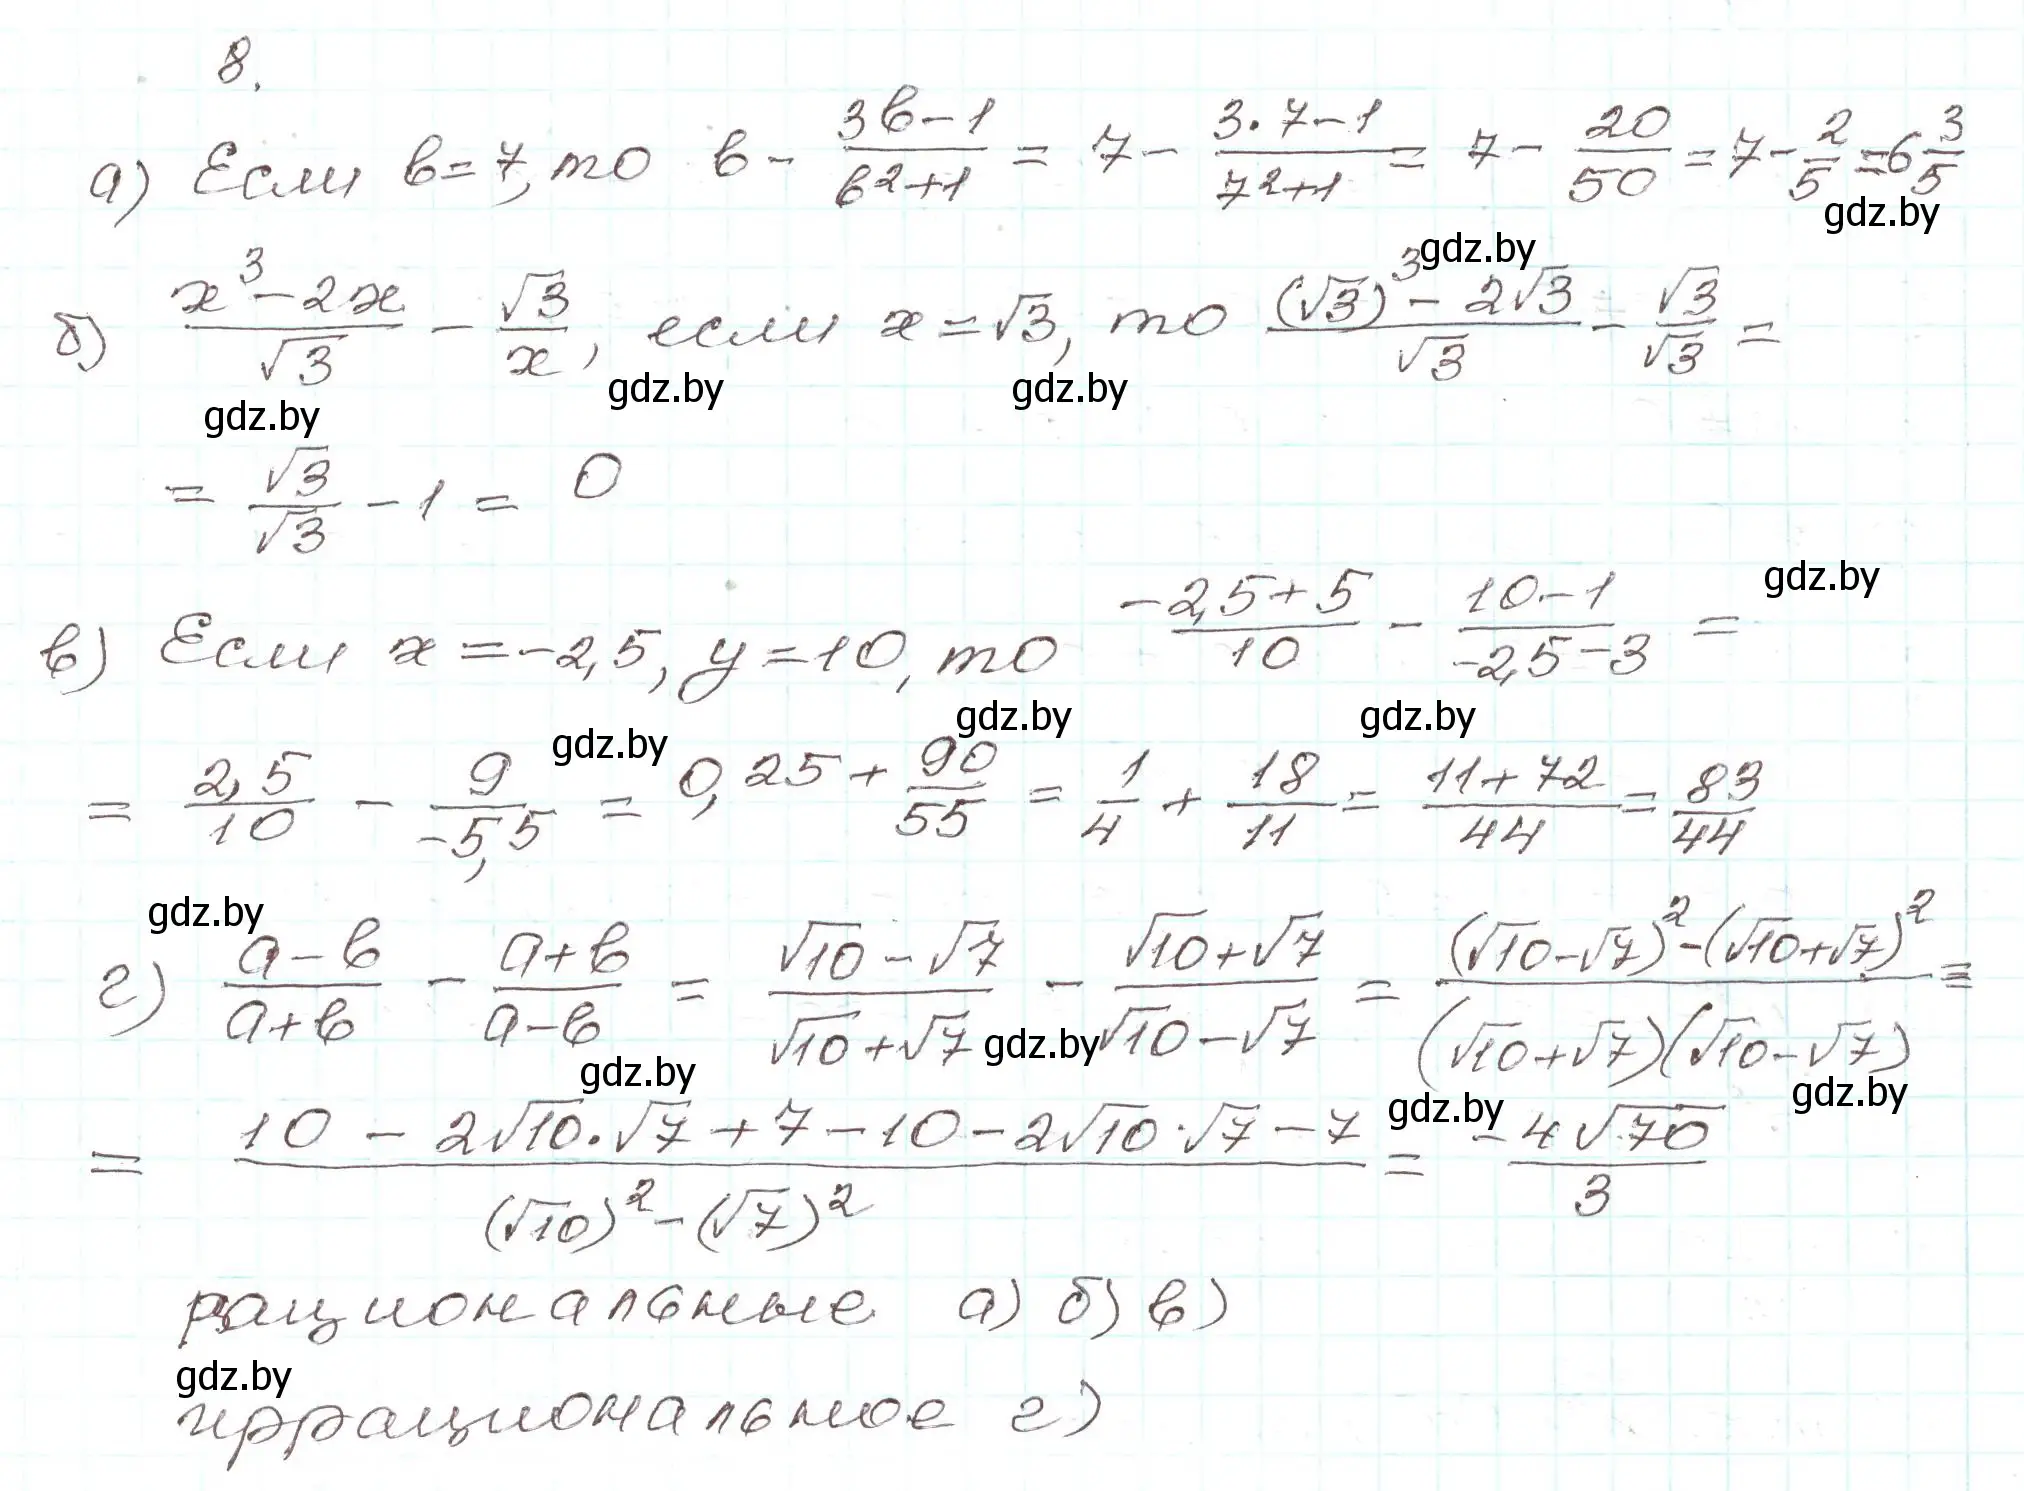 8.
а) Если b=7, то b - (3b-1)/(b²+1) = 7 - (3·7-1)/(7²+1) = 7 - 20/50 = 7 - 2/5 = 6 3/5
gdz.by
gdz.by
б) (x³-2x)/√3 - √3/x, если x=√3, то ((√3)³-2√3)/√3 - √3/√3 =
gdz.by gdz.by
gdz.by
= √3/√3 - 1 = 0
gdz.by
в) Если x=-2,5, y=10, то (-2,5+5)/10 - (10-1)/(-2,5-3) =
gdz.by gdz.by
gdz.by
= 2,5/10 - 9/(-5,5) = 0,25 + 90/55 = 1/4 + 18/11 = (11+72)/44 = 83/44
gdz.by
г) (a-b)/(a+b) - (a+b)/(a-b) = (√10-√7)/(√10+√7) - (√10+√7)/(√10-√7) = ((√10-√7)²-(√10+√7)²)/((√10+√7)(√10-√7)) =
gdz.by
gdz.by gdz.by
gdz.by
= (10-2√10·√7+7-10-2√10·√7-7)/((√10)²-(√7)²) = -4√70/3
рациональные а) б) в)
gdz.by
иррациональное г)